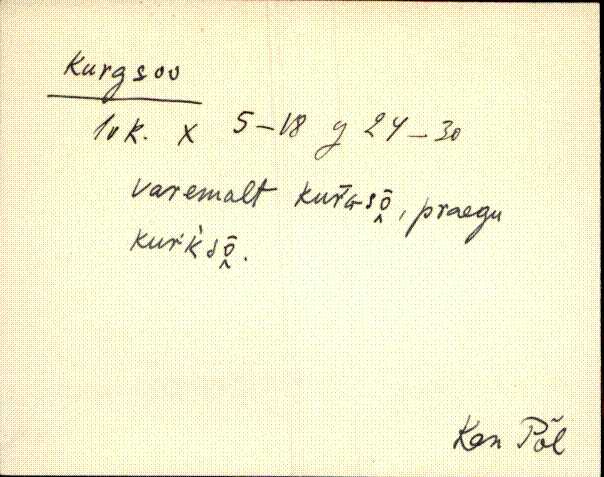 Kurgsoo
lvk. x 5-18 y 24-30
varemalt kur̆ɢsō̬, praegu
kur'k̀sō̬.
Kan Põl